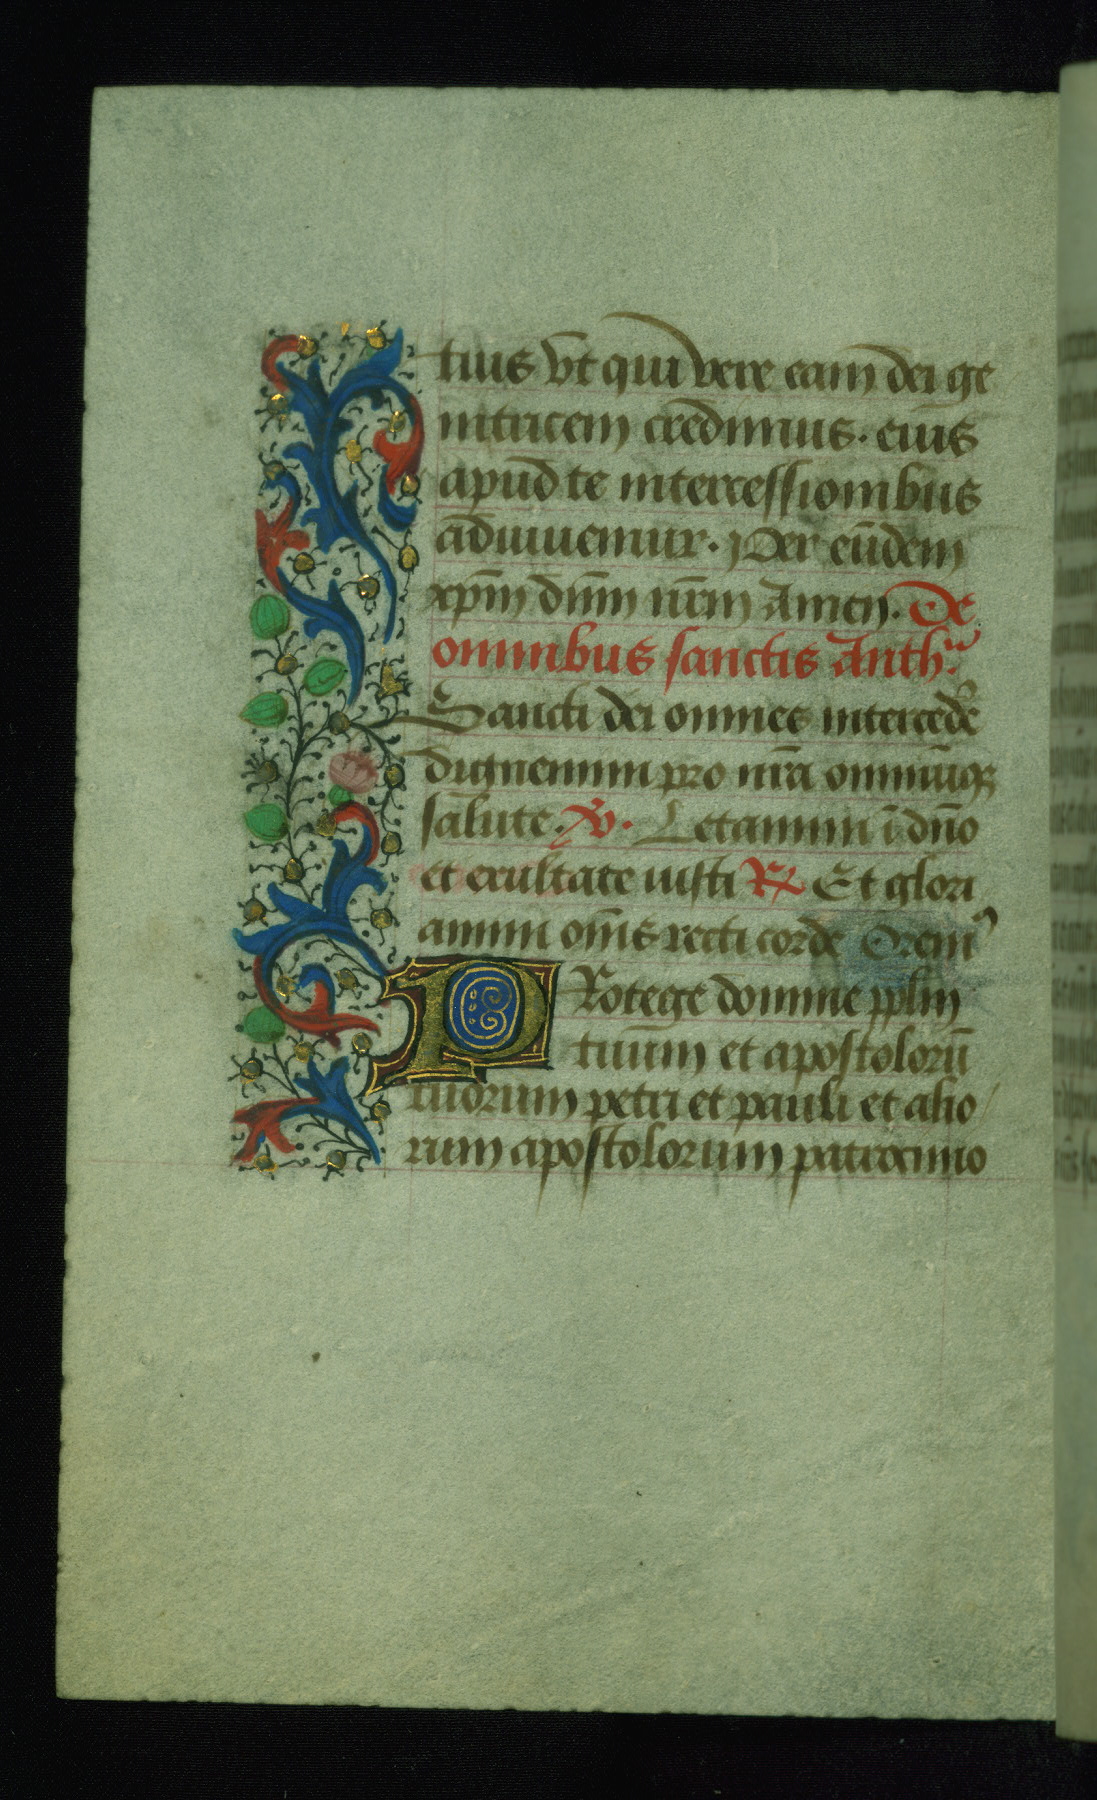 tuis vt qui vere eam dei ge
nitricem credimus. eius
apud te intercessionibus
adiuuemur. Per eūdem
xp̄m dn̄m nr̄m Amen. De
omnibus sanctis Anth.ͣ
Sancti dei omnes intercede
dignemini pro nr̄a omniūqꝫ
salute. V. Letamini ī dn̄o
et exultate iusti R Et glori
amini om̄s recti corde Orem⁹
PRotege domine pplm̄
tuum et apostolorū
tuorum petri et pauli et alio
rum apostolorum patrocinio